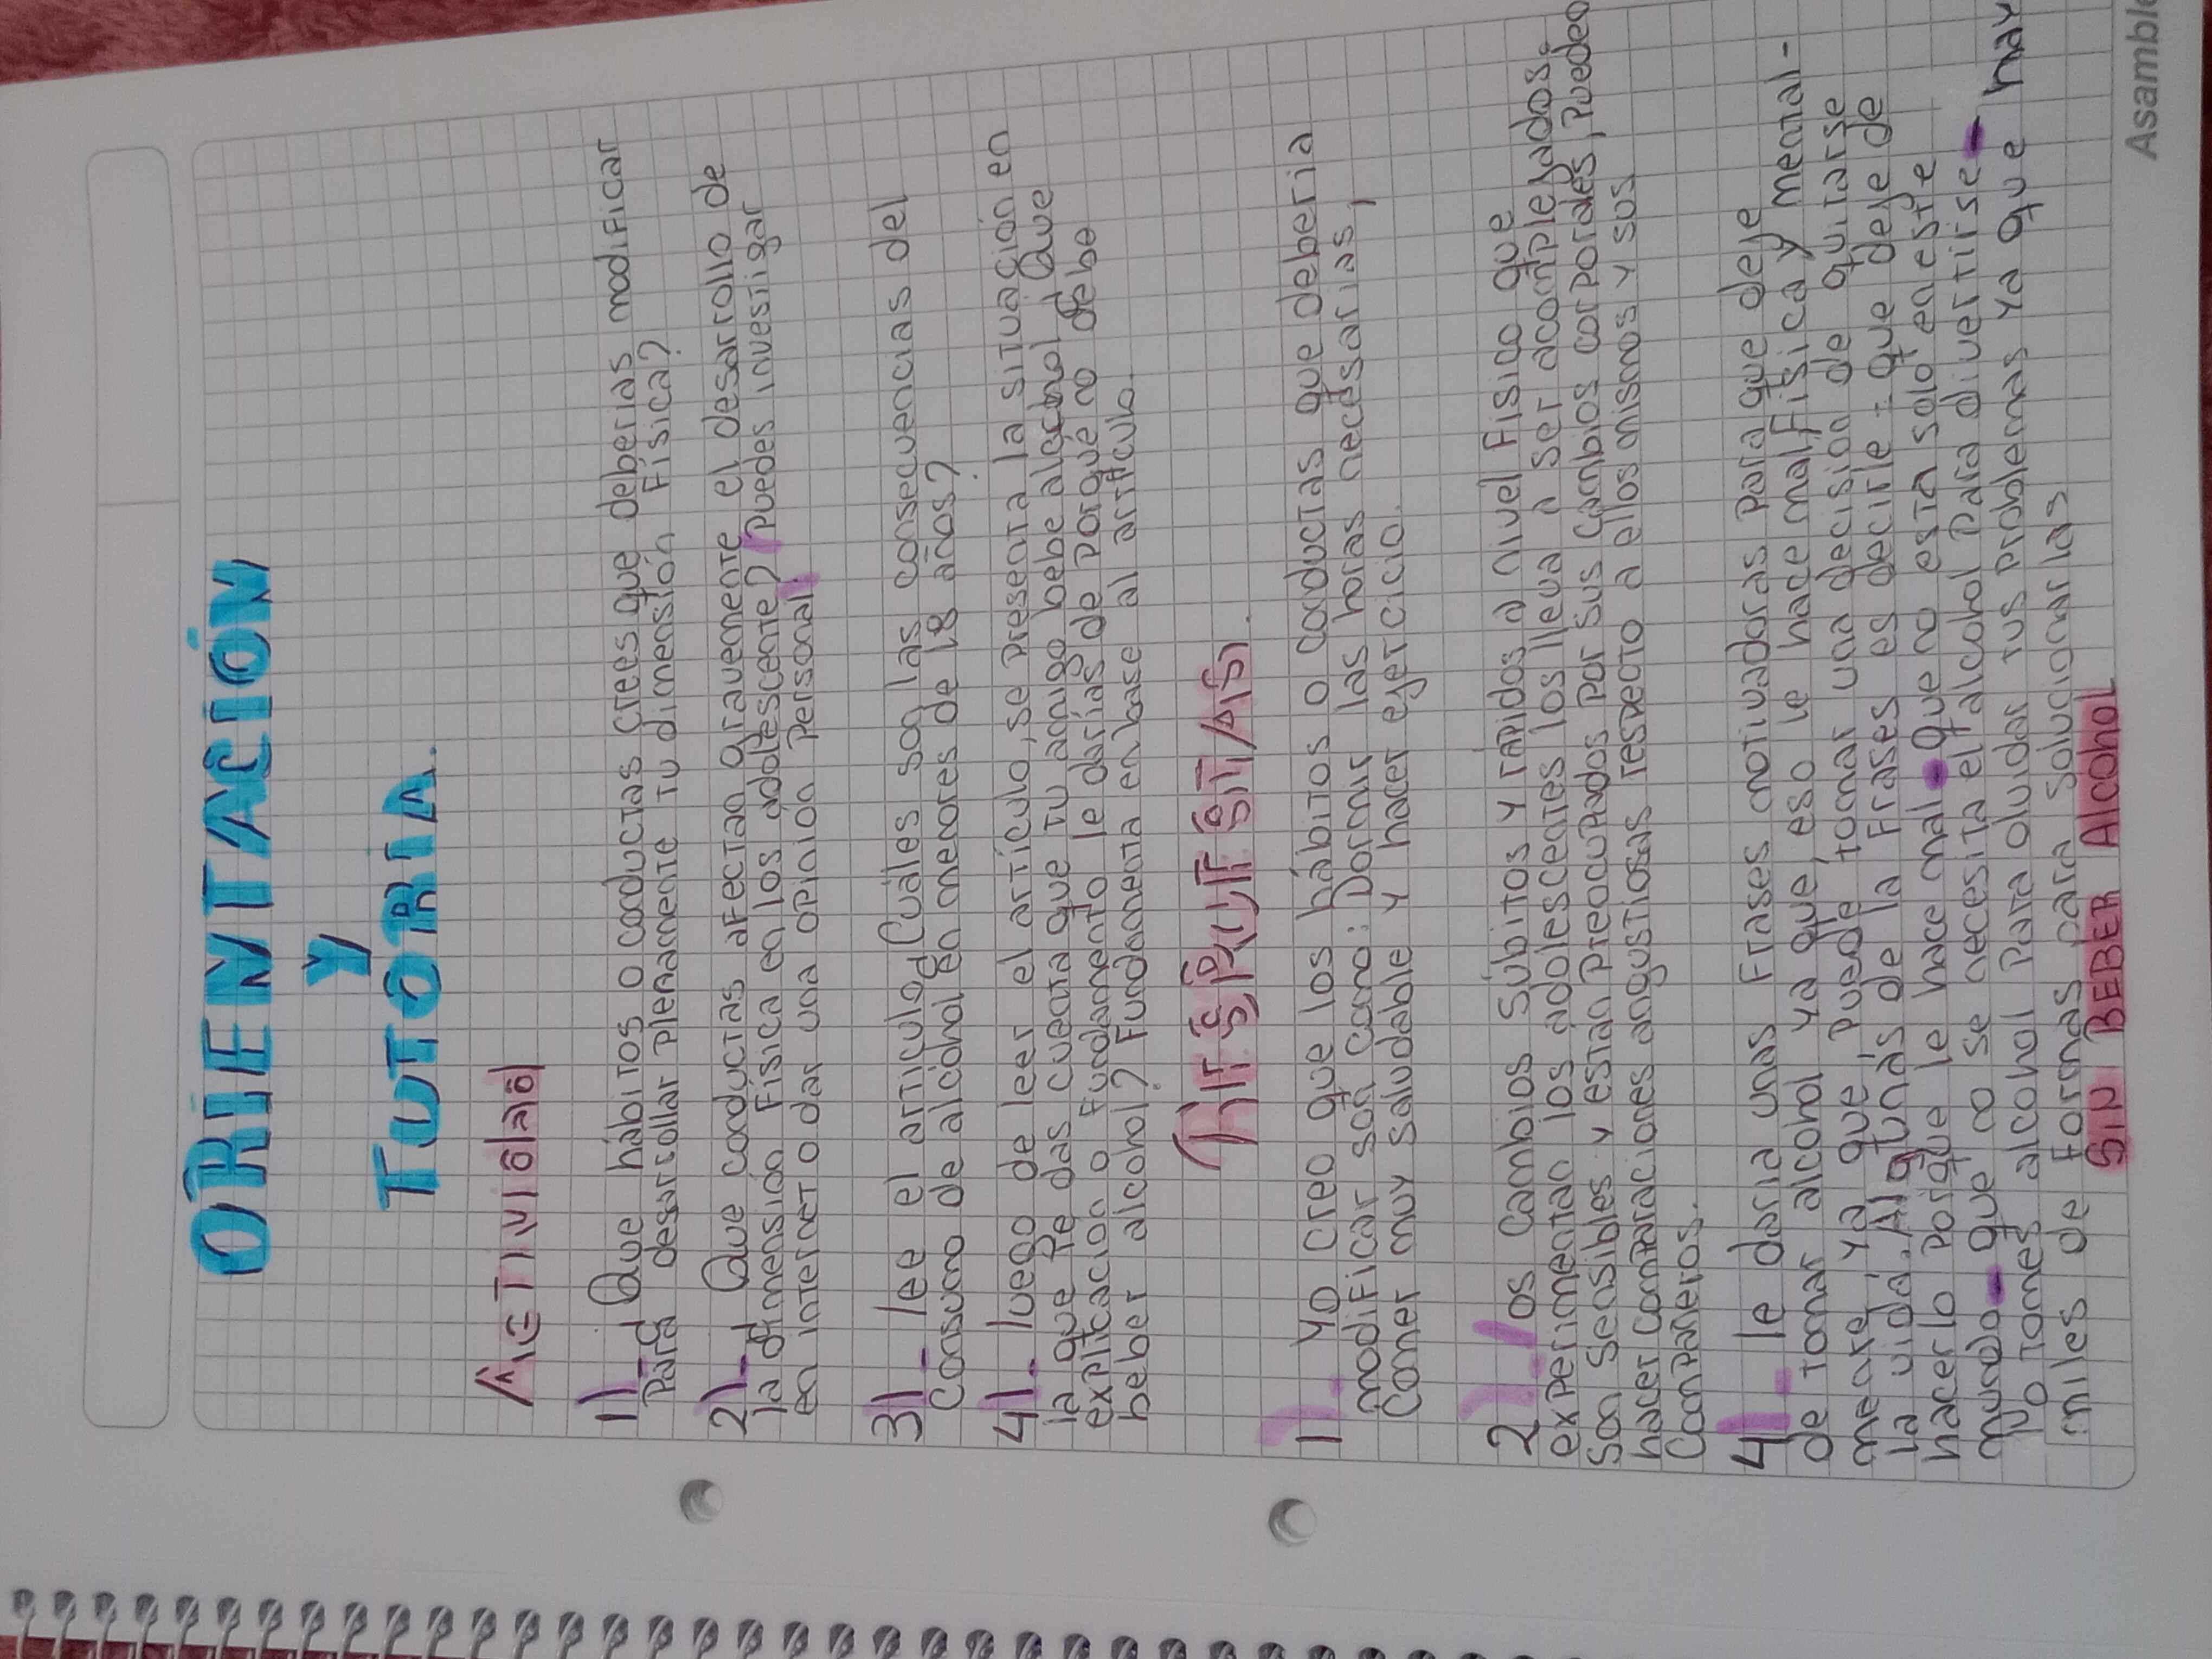 ORIENTACIÓN
Y
TUTORIA.
ACTIVIDAD
1)- Que hábitos o conductas crees que deberias modificar
Para desarrollar plenamente tu dimensión Física?
2)- Que conductas afectan gravemente el desarrollo de
la dimensión Física en los adolescente? Puedes investigar
en internet o dar una opinión Personal.
3)- lee el articulo¿Cuáles son las consecuencias del
Consumo de alcohol en menores de 18 años?
4)- luego de leer el artículo, se presenta la situación en
la que te das cuenta que tu amigo bebe alcohol Que
explicación o fundamento le darías de porqué no debe
beber alcohol? Fundamenta en base al artículo.
RESPUESTAS.
1)- yo creo que los hábitos o conductas que deberia
modificar son como: Dormir las horas necesarias,
Comer muy saludable y hacer ejercicio.
2)- los Cambios Súbitos y rápidos a nivel Físico que
experimentan los adolescentes los lleva a ser acomplejados.
Son Sensibles y estan preocupados por sus cambios corporales, Pueden
hacer comparaciones angustiosas respecto a ellos mismos y sus
Compañeros.
4)- le daria unas Frases motivadoras para que deje
de tomar alcohol ya que, eso le hace mal,Física y mental-
mente, ya que puede tomar una decisión de quitarse
la vida. Algunas de la Frases es decirle: - que deje de
hacerlo porque le hace mal - que no está solo en este
mundo - que no se necesita el alcohol para divertirse - hay
No tomes alcohol Para olvidar tus problemas ya que
miles de Formas para Solucionarlas
SIN BEBER Alcohol
Asamble